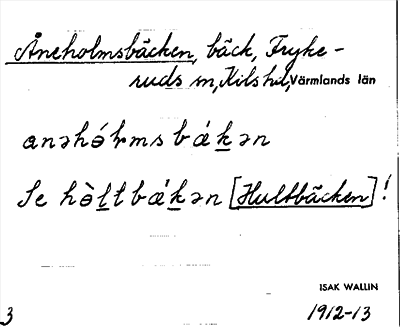 Åneholmsbäcken, bäck, Fryke-
ruds sn, Kils hd, Värmlands län
anəhólmsbákən
Se hòltbákən [Hultbäcken]!
ISAK WALLIN
3 1912-13